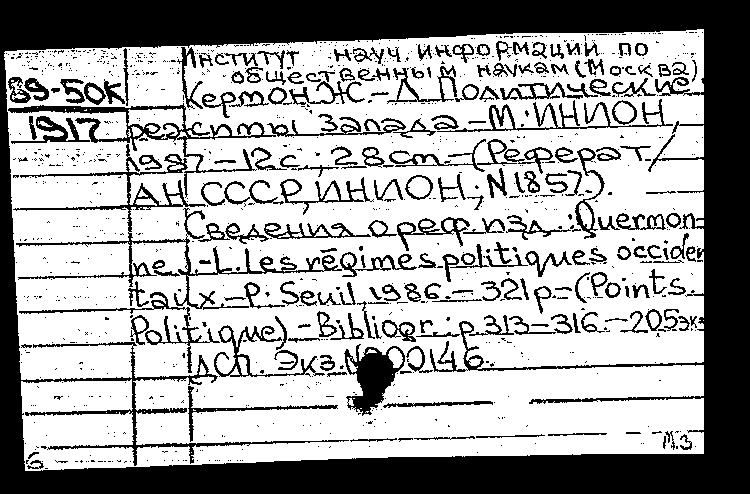 Институт науч. информации по
общественным наукам (Москва)
89-50К
1917
Кермон Ж.-Л. Политические
режимы Запада.-М.: ИНИОН,
1987.-12с.; 28cm.-(Реферат/
АН СССР, ИНИОН; N1857).
Сведения о реф. изд.: Quermon-
ne J.-L. Les régimes politiques occiden
taux.-P.: Seuil, 1986.-321p.-(Points.
Politique).-Bibliogr.: p.313-316.-205экз
ДСП. Экз. N000146.
М.З
6